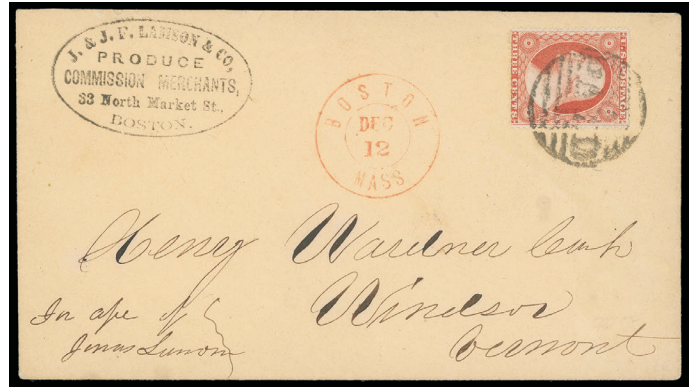 J. & J. F. LAMSON & CO,
PRODUCE
COMMISSION MERCHANTS,
33 North Market St.,
BOSTON.
BOSTON
DEC
12
MASS
U.S. POSTAGE
THREE CENTS
PAID
Henry Wardner Cash
Windsor
Vermont
In
of
Jonas